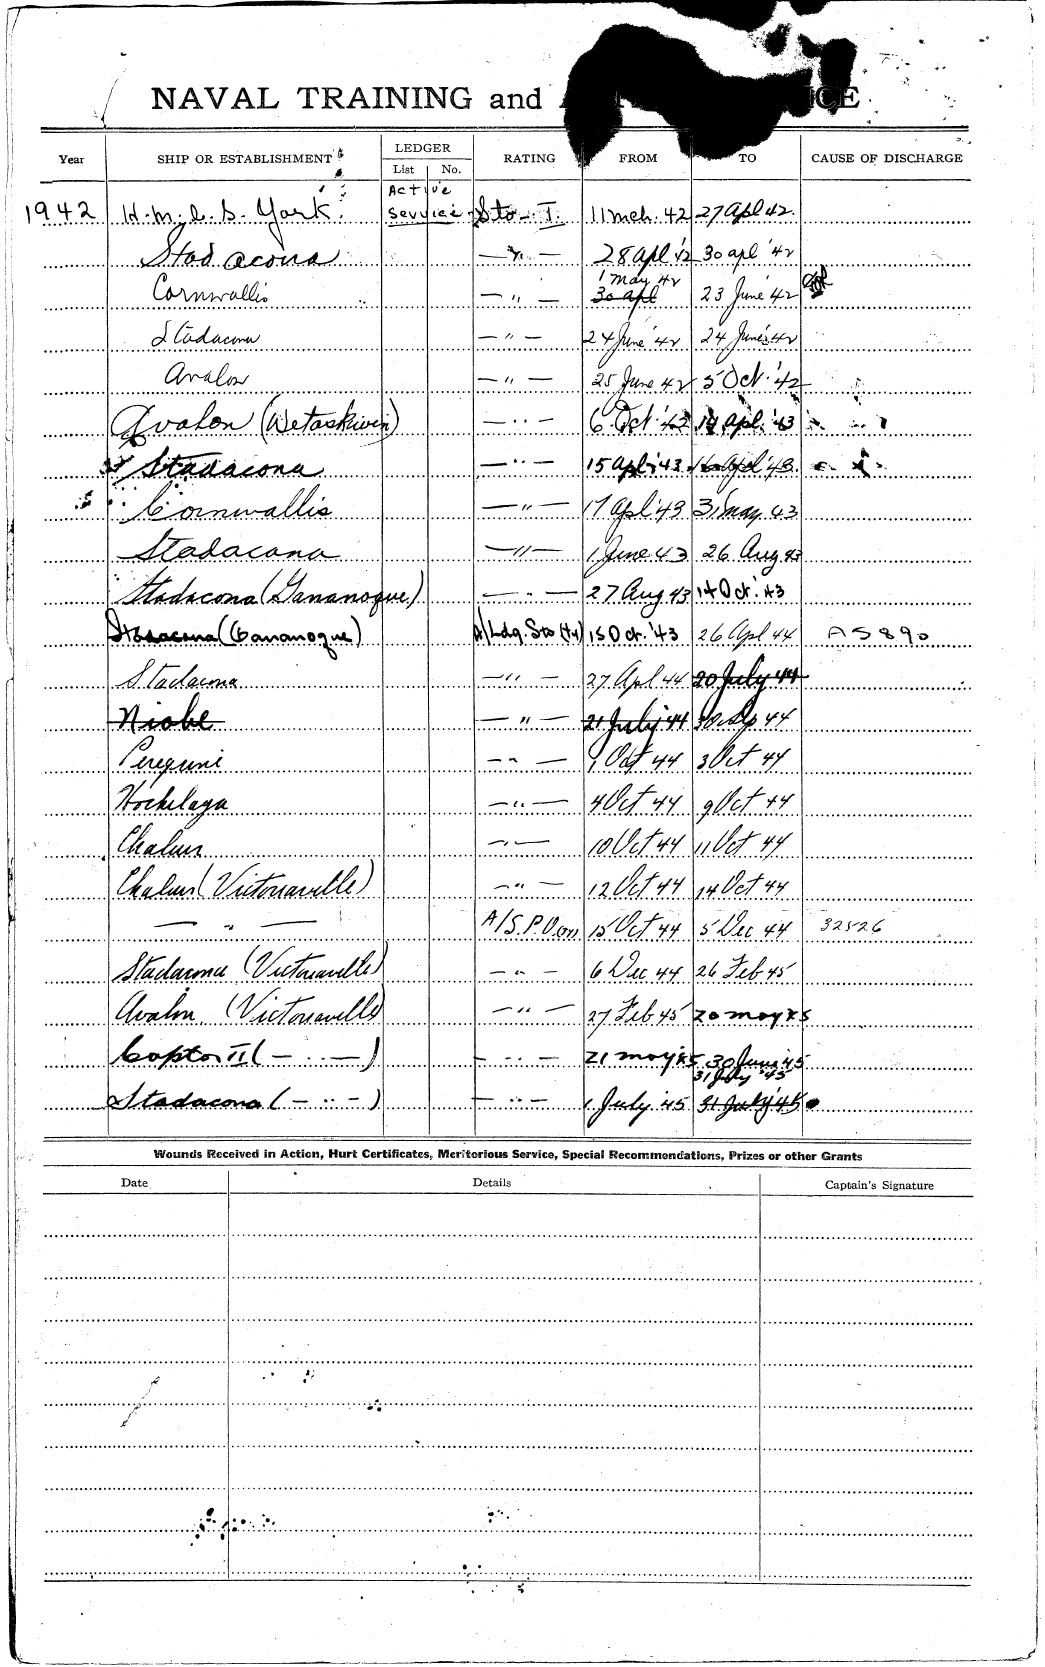 NAVAL TRAINING and
Year SHIP OR ESTABLISHMENT LEDGER List No. RATING FROM TO CAUSE OF DISCHARGE
Active
1942 H.M.C.S. York. Service Sto-I. 11 Mch. 42 27 Apl 42.
Stadacona — " — 28 apl '42 30 apl '42
1 may 42
Cornwallis — " — 30 apl 23 June '42
Stadacona — " — 24 June '42 24 June '42
Avalon — " — 25 June 42 5 Oct. '42
Avalon (Wetaskiwin) — " — 6 Oct '42 14 apl. '43
Stadacona — " — 15 apl '43 16 apl '43
Cornwallis — " — 17 apl '43 31 may 43
Stadacona — " — 1 June 43 26 Aug 43
Stadacona (Gananoque) — " — 27 Aug 43 14 Oct. '43
Stadacona (Gananoque) A/Ldg. Sto 15 Oct. '43 26 Apl 44 A5890
Stadacona — " — 27 Apl 44 20 July 44
Niobe — " — 21 July 44 30 Sep 44
Peregrine — " — 1 Oct 44 3 Oct 44
Hochelaga — " — 4 Oct 44 9 Oct 44
Chaleur — " — 10 Oct 44 11 Oct 44
Chaleur (Victoriaville) — " — 12 Oct 44 14 Oct 44
— " — A/S.P.O. 15 Oct 44 5 Dec 44 32526
Stadacona (Victoriaville) — " — 6 Dec 44 26 Feb 45
Avalon (Victoriaville) — " — 27 Feb 45 20 may 45
Captor II (— " —) — " — 21 may 45 30 June '45
31 July '45
Stadacona (— " —) — " — 1 July 45 31 July '45
Wounds Received in Action, Hurt Certificates, Meritorious Service, Special Recommendations, Prizes or other Grants
Date Details Captain's Signature